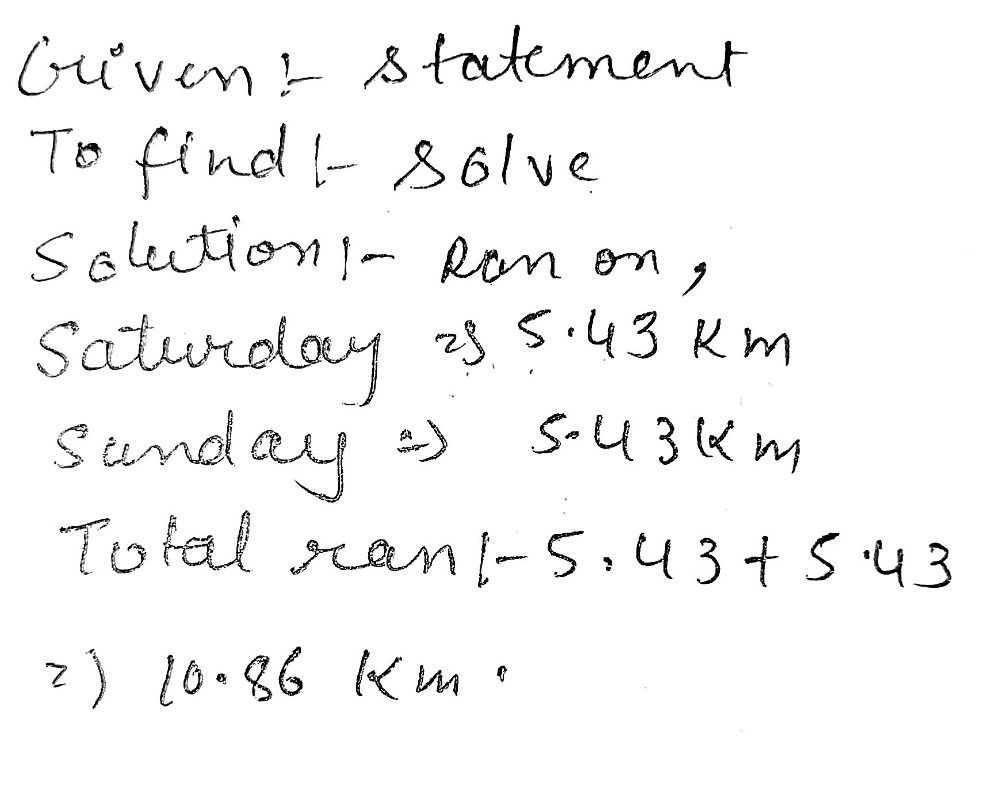 Given :- statement
To find :- solve
Solution :- Ran on,
Saturday => 5.43 Km
Sunday => 5.43 Km
Total ran :- 5.43 + 5.43
=) 10.86 Km.